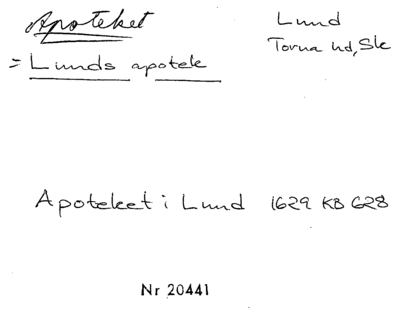 Apoteket
Lund
Torna hd, Sk
= Lunds apotek
Apoteket i Lund 1629 KB 628
Nr 20441